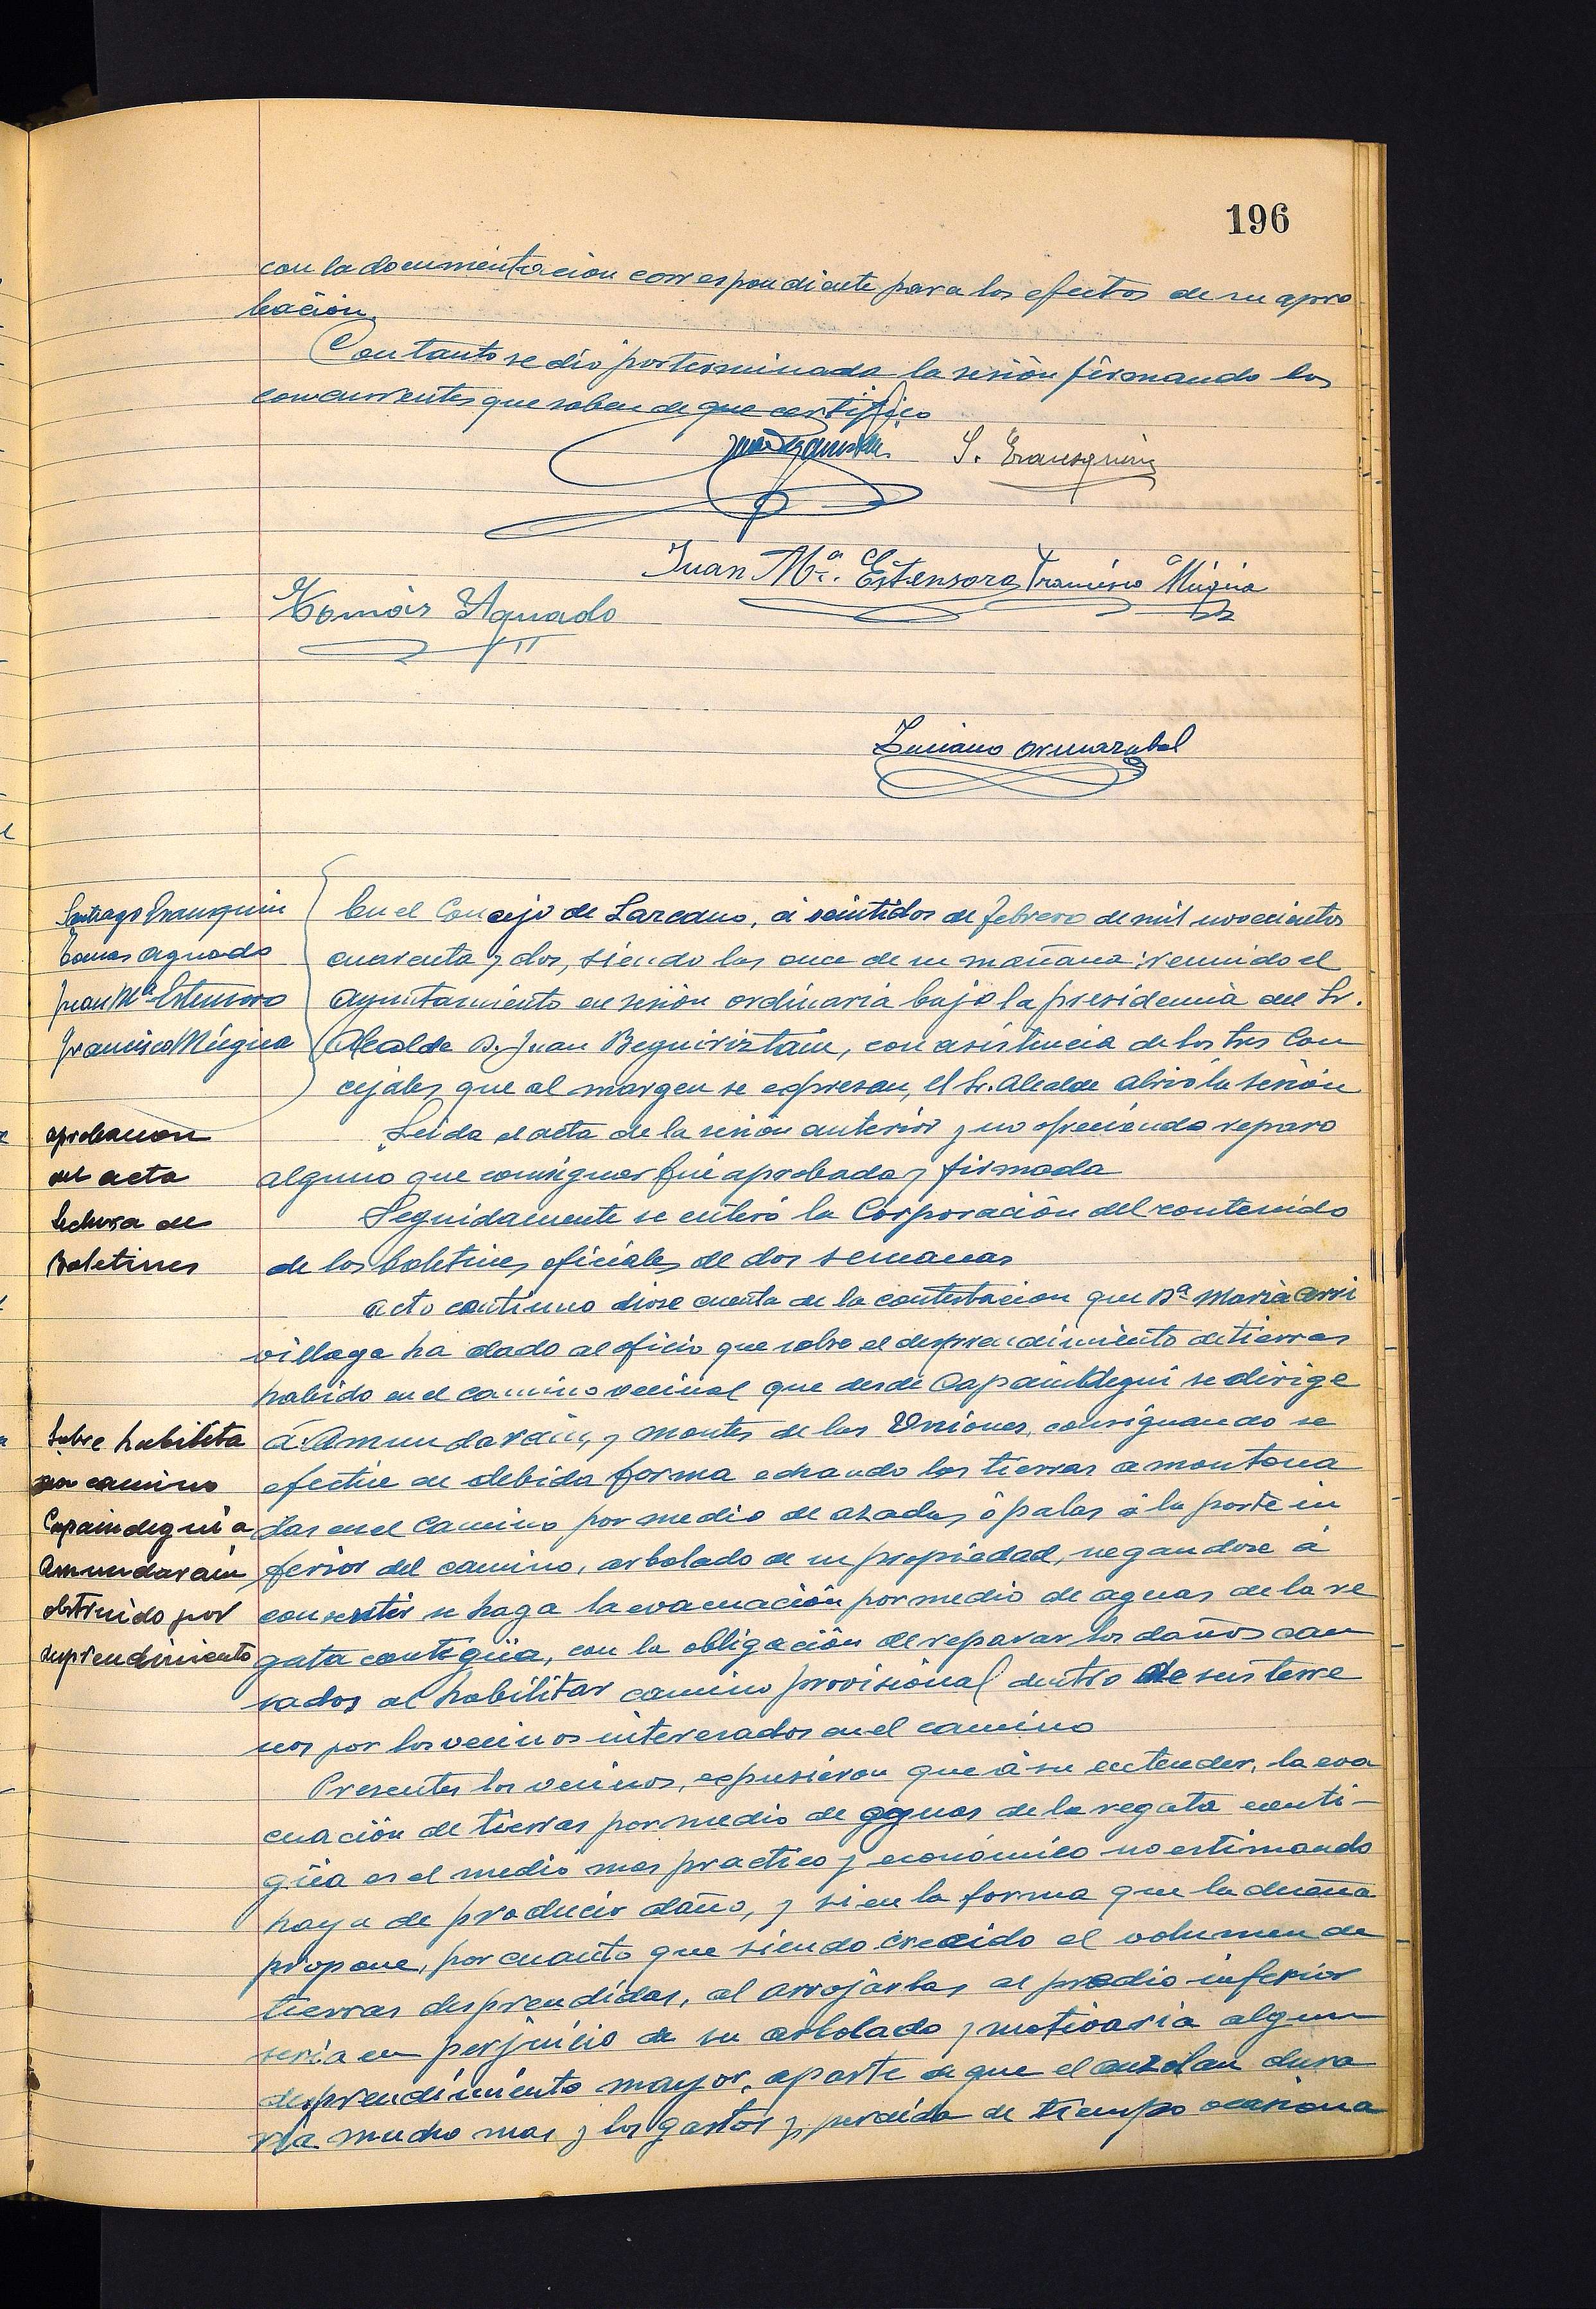 196
con la documentación correspondiente para los efectos de su apro
bación.
Con tanto se dio por terminada la sesión firmando los
concurrentes que saben de que certifico
S. Eransquin
Juan Mª. Estensoro Francisco Múgica
Tomás Aguado
Luciano Ormazabal
Santiago Eransquin
Tomas Aguado
Juan Mª Estensoro
Francisco Múgica
En el Concejo de Lazcano, á veintidos de febrero de mil novecientos
cuarenta y dos, siendo las once de su mañana: reunido el
Ayuntamiento en sesión ordinaria bajo la presidencia del Sr.
Alcalde D. Juan Beguiriztain, con asistencia de los tres Con
cejales que al margen se expresan, el Sr. Alcalde abrió la sesión
aprobacion
del acta
Leida el acta de la sesión anterior y no ofreciendo reparo
alguno que consignar fué aprobada y firmada
Lectura de
Boletines
Seguidamente se enteró la Corporación del contenido
de los boletines oficiales de dos semanas
Acto continuo diose cuenta de la contestacion que Dª Maria Arri
villaga ha dado al oficio que sobre el desprendimiento de tierras
habido en el camino vecinal que desde Capaindegui se dirige
Sobre habilita
cion camino
Capaindegui a
Amundarain
obstruido por
desprendimiento
á Amundarain, y montes de las Uniones, consignando se
efectúe en debida forma echando las tierras amontona
das en el camino por medio de azadas ó palas á la parte in
ferior del camino, arbolado de su propiedad, negandose á
consentir se haga la evacuación por medio de aguas de la re
gata contigüa, con la obligación de reparar los daños cau
sados al habilitar camino provisional dentro de sus terre
nos por los vecinos interesados en el camino
Presentes los vecinos, expusieron que á su entender, la eva
cuación de tierras por medio de aguas de la regata conti-
güa es el medio mas practico y económico no estimando
haya de producir daño, y si en la forma que la dueña
propone, por cuanto que siendo crecido el volumen de
tierras desprendidas, al arrojarlas al predio inferior
seria en perjuicio de su arbolado y motivaria algun
desprendimiento mayor, aparte de que el auzolan dura
ria mucho mas y los gastos y perdida de tiempo ocasiona